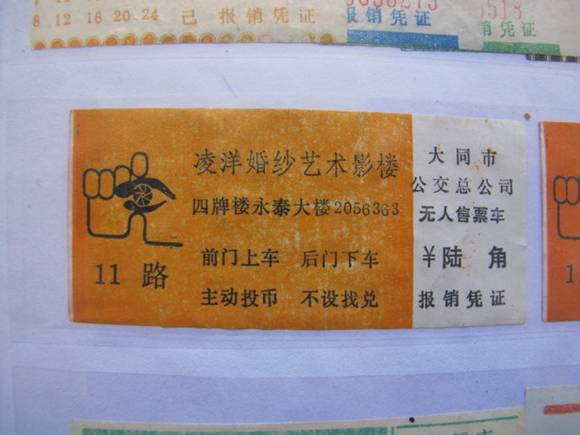 8 12 16 20 24 己 报销凭证
报销凭证
5518
销凭证
凌洋婚纱艺术影楼
四牌楼永泰大楼2056363
前门上车 后门下车
主动投币 不设找兑
11 路
大同市
公交总公司
无人售票车
¥陆 角
报销凭证